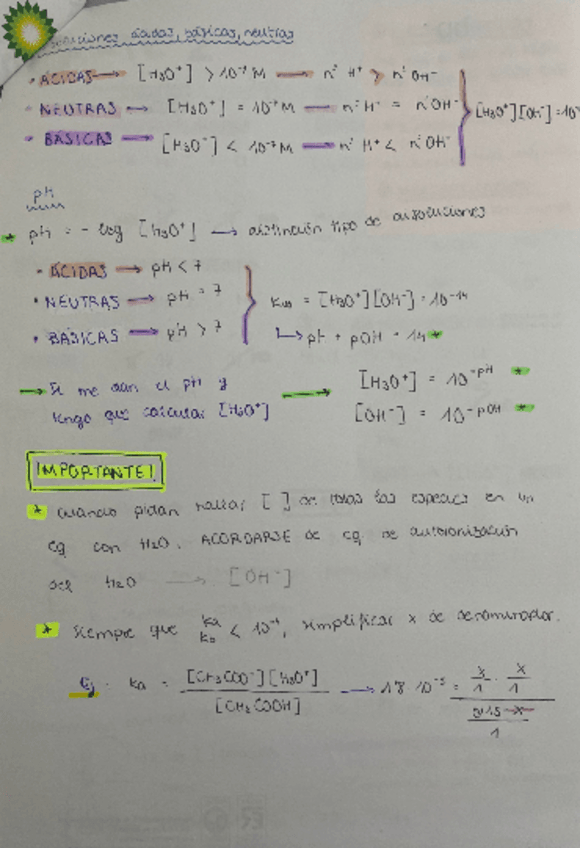 bp
soluciones ácidas, básicas, neutras
• ÁCIDAS → [H₃O⁺] > 10⁻⁷ M → nº H⁺ > nº OH⁻
• NEUTRAS → [H₃O⁺] = 10⁻⁷ M → nº H⁺ = nº OH⁻ [H₃O⁺][OH⁻] = 10
• BÁSICAS → [H₃O⁺] < 10⁻⁷ M → nº H⁺ < nº OH⁻
pH
* pH = - log [H₃O⁺] → distinción tipo de disoluciones
• ÁCIDAS → pH < 7
• NEUTRAS → pH = 7 Kw = [H₃O⁺][OH⁻] = 10⁻¹⁴
• BÁSICAS → pH > 7 ↳ pH + pOH = 14 *
→ Si me dan el pH y → [H₃O⁺] = 10⁻ᵖᴴ *
tengo que calcular [H₃O⁺] [OH⁻] = 10⁻ᵖᴼᴴ *
¡IMPORTANTE!
* cuando pidan hallar [ ] de todas las especies en un
eq con H₂O. ACORDARSE de eq. de autoionización
del H₂O → [OH⁻]
* siempre que Ka Kb < 10⁻⁴, simplificar x de denominador.
Ej: Ka = [CH₃COO⁻][H₃O⁺] / [CH₃COOH] → 1'8·10⁻⁵ = x/1 · x/1 / 0'15-x/1